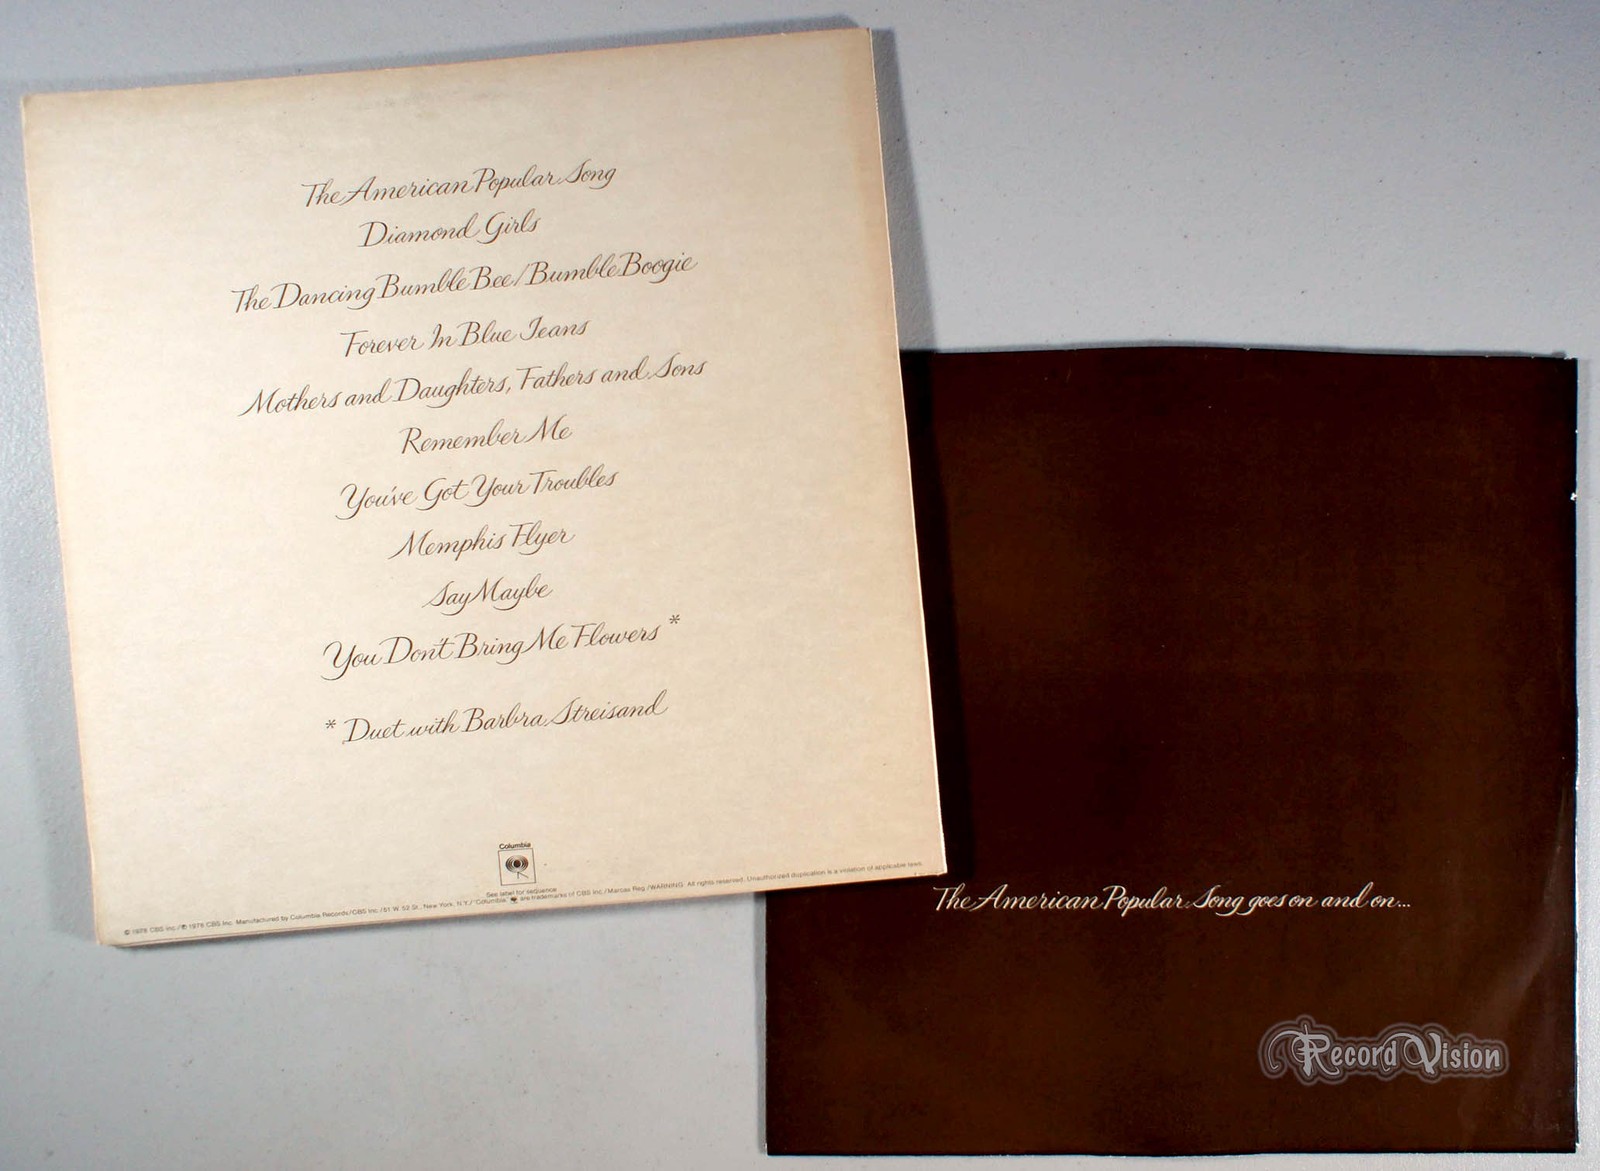 The American Popular Song
Diamond Girls
The Dancing Bumble Bee/Bumble Boogie
Forever In Blue Jeans
Mothers and Daughters, Fathers and Sons
Remember Me
You've Got Your Troubles
Memphis Flyer
Say Maybe
You Don't Bring Me Flowers *
* Duet with Barbra Streisand
Columbia
See label for sequence
© 1978 CBS Inc./℗ 1978 CBS Inc. Manufactured by Columbia Records/CBS Inc./51 W. 52 St., New York, N.Y./"Columbia," are trademarks of CBS Inc./Marcas Reg./WARNING: All rights reserved. Unauthorized duplication is a violation of applicable laws.
The American Popular Song goes on and on...
Record Vision